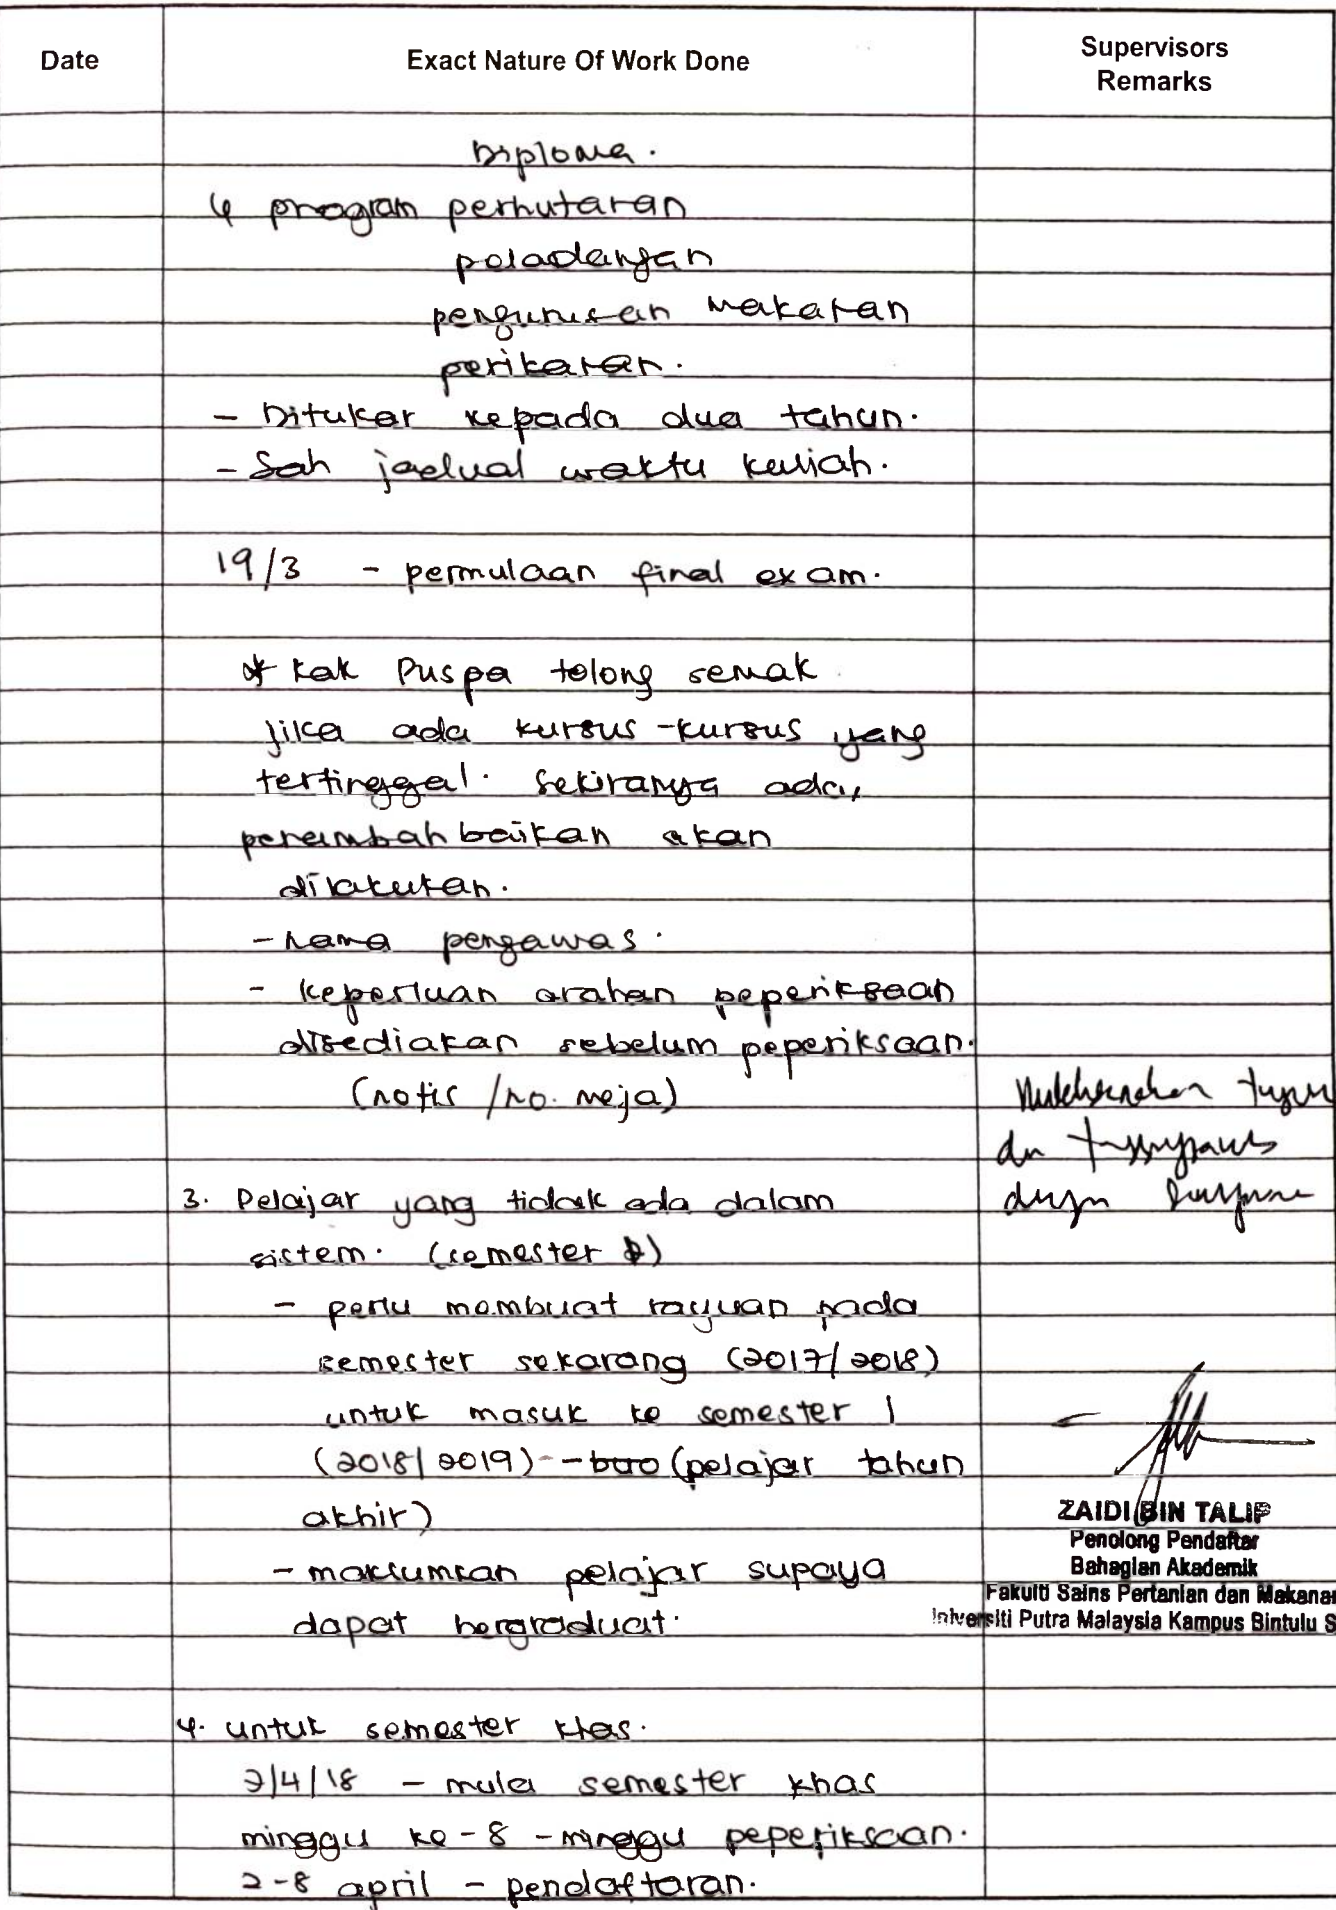 Date
Exact Nature Of Work Done
Supervisors
Remarks
Diploma.
4 program perhutanan
peladangan
pengurusan makanan
perikanan.
- Ditukar kepada dua tahun.
- Sah jadual waktu kuliah.
19/3 - permulaan final exam.
* Kak Puspa tolong semak
jika ada kursus-kursus yang
tertinggal. Sekiranya ada,
penambahbaikan akan
dilakukan.
- nama pengawas.
- keperluan arahan peperiksaan
disediakan sebelum peperiksaan.
(notis /no. meja)
3. Pelajar yang tidak ada dalam
sistem. (semester )
- perlu membuat rayuan pada
semester sekarang (2017/2018)
untuk masuk ke semester 1
(2018/2019) - (pelajar tahun
akhir)
- maklumkan pelajar supaya
dapat bergraduat.
4. untuk semester khas.
2/4/18 - mula semester khas
minggu ke-8 - minggu peperiksaan.
2-8 april - pendaftaran.
dan
ZAIDI BIN TALIP
Penolong Pendaftar
Bahagian Akademik
Fakulti Sains Pertanian dan Makanan
Universiti Putra Malaysia Kampus Bintulu S